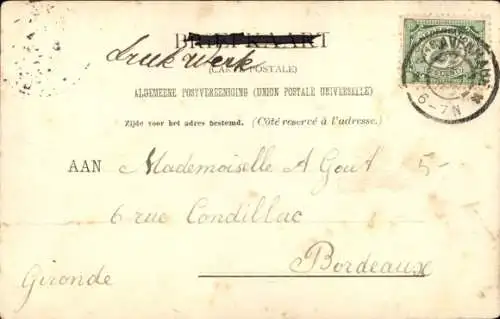 BRIEFKAART
drukwerk
(CARTE POSTALE)
ALGEMEENE POSTVEREENIGING (UNION POSTALE UNIVERSELLE)
Zijde voor het adres bestemd. (Côté réservé à l'adresse.)
AAN Mademoiselle A Gout 5-
6 rue Condillac
Bordeaux
Gironde
6-7N